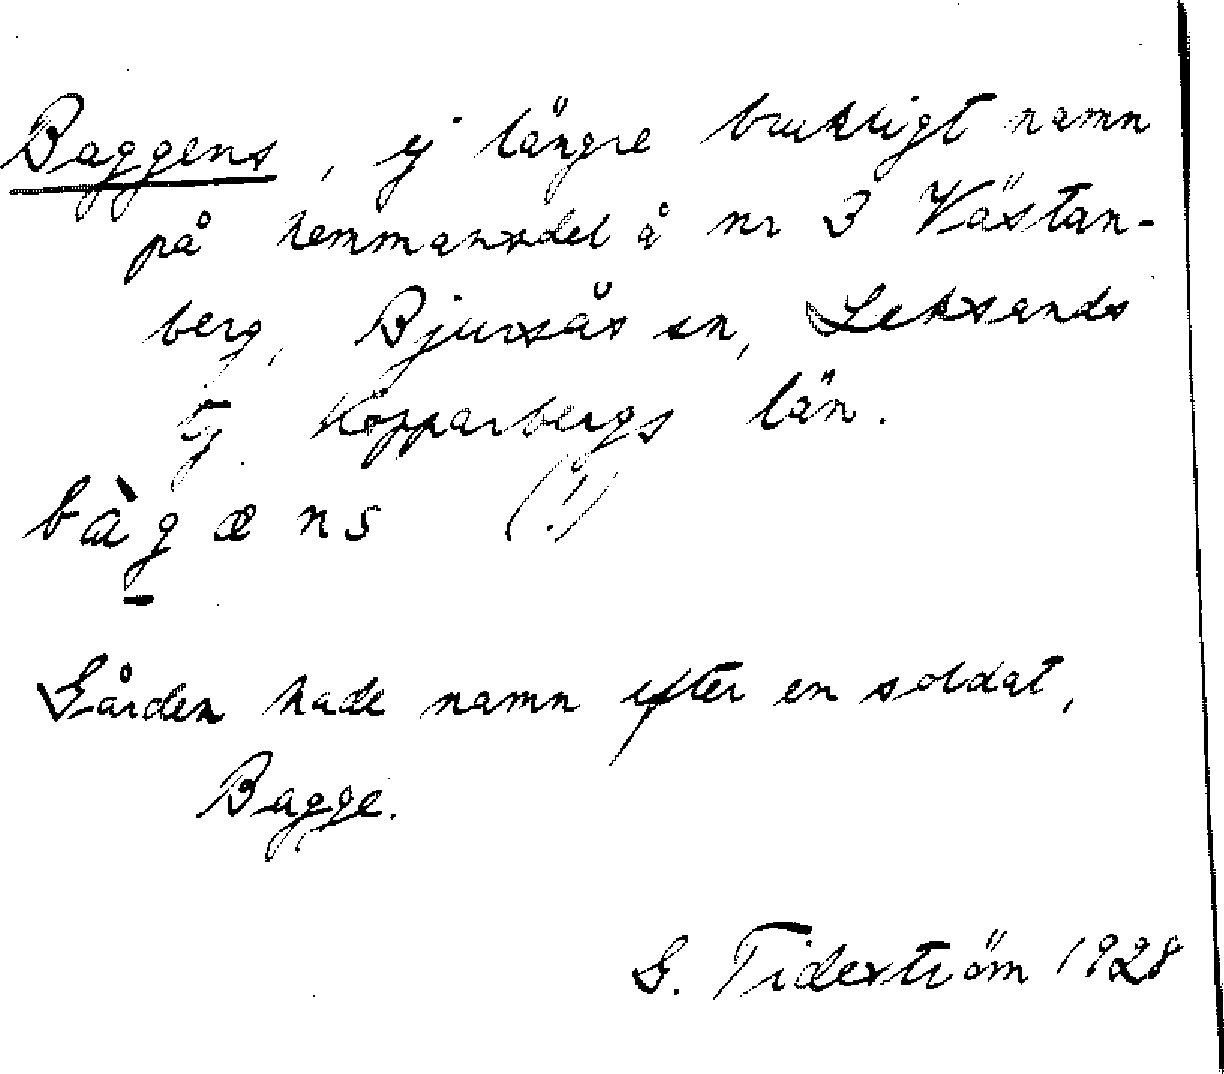 Baggens, ej längre brukligt namn
på hemmansdel å nr 3 Västan-
berg, Bjursås sn, Leksands
tg. Kopparbergs län.
bàgæns (!)
Gården hade namn efter en soldat,
Bagge.
G. Tideström 1928